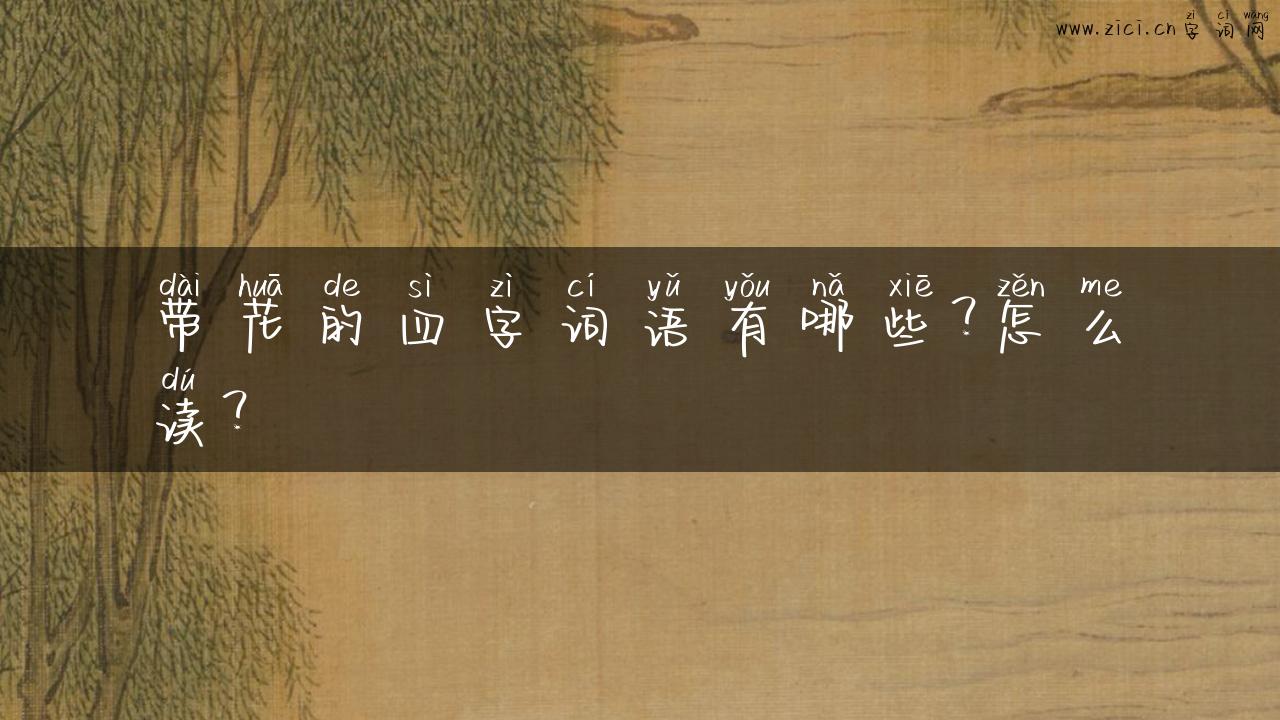 zì cí wǎng
www.zici.cn字词网
dài huā de sì zì cí yǔ yǒu nǎ xiē zěn me
带花的四字词语有哪些？怎么
dú
读？